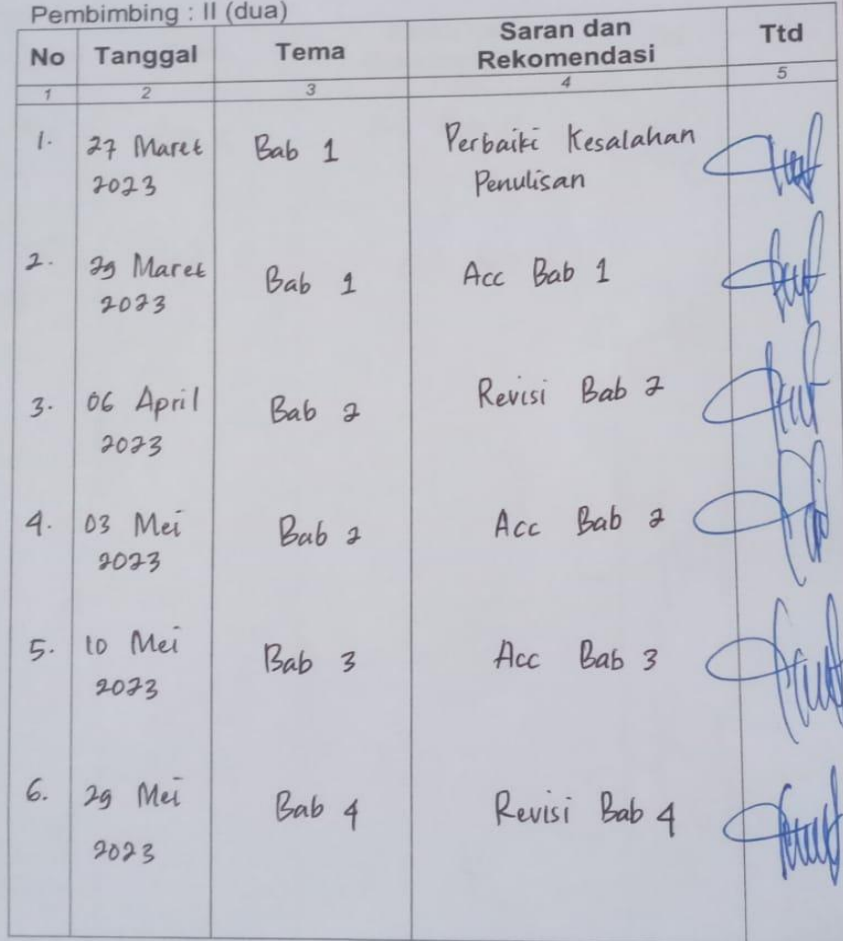 Pembimbing : II (dua)
No Tanggal Tema Saran dan Rekomendasi Ttd
1 2 3 4 5
1. 27 Maret 2023 Bab 1 Perbaiki Kesalahan Penulisan
2. 29 Maret 2023 Bab 1 Acc Bab 1
3. 06 April 2023 Bab 2 Revisi Bab 2
4. 03 Mei 2023 Bab 2 Acc Bab 2
5. 10 Mei 2023 Bab 3 Acc Bab 3
6. 29 Mei 2023 Bab 4 Revisi Bab 4